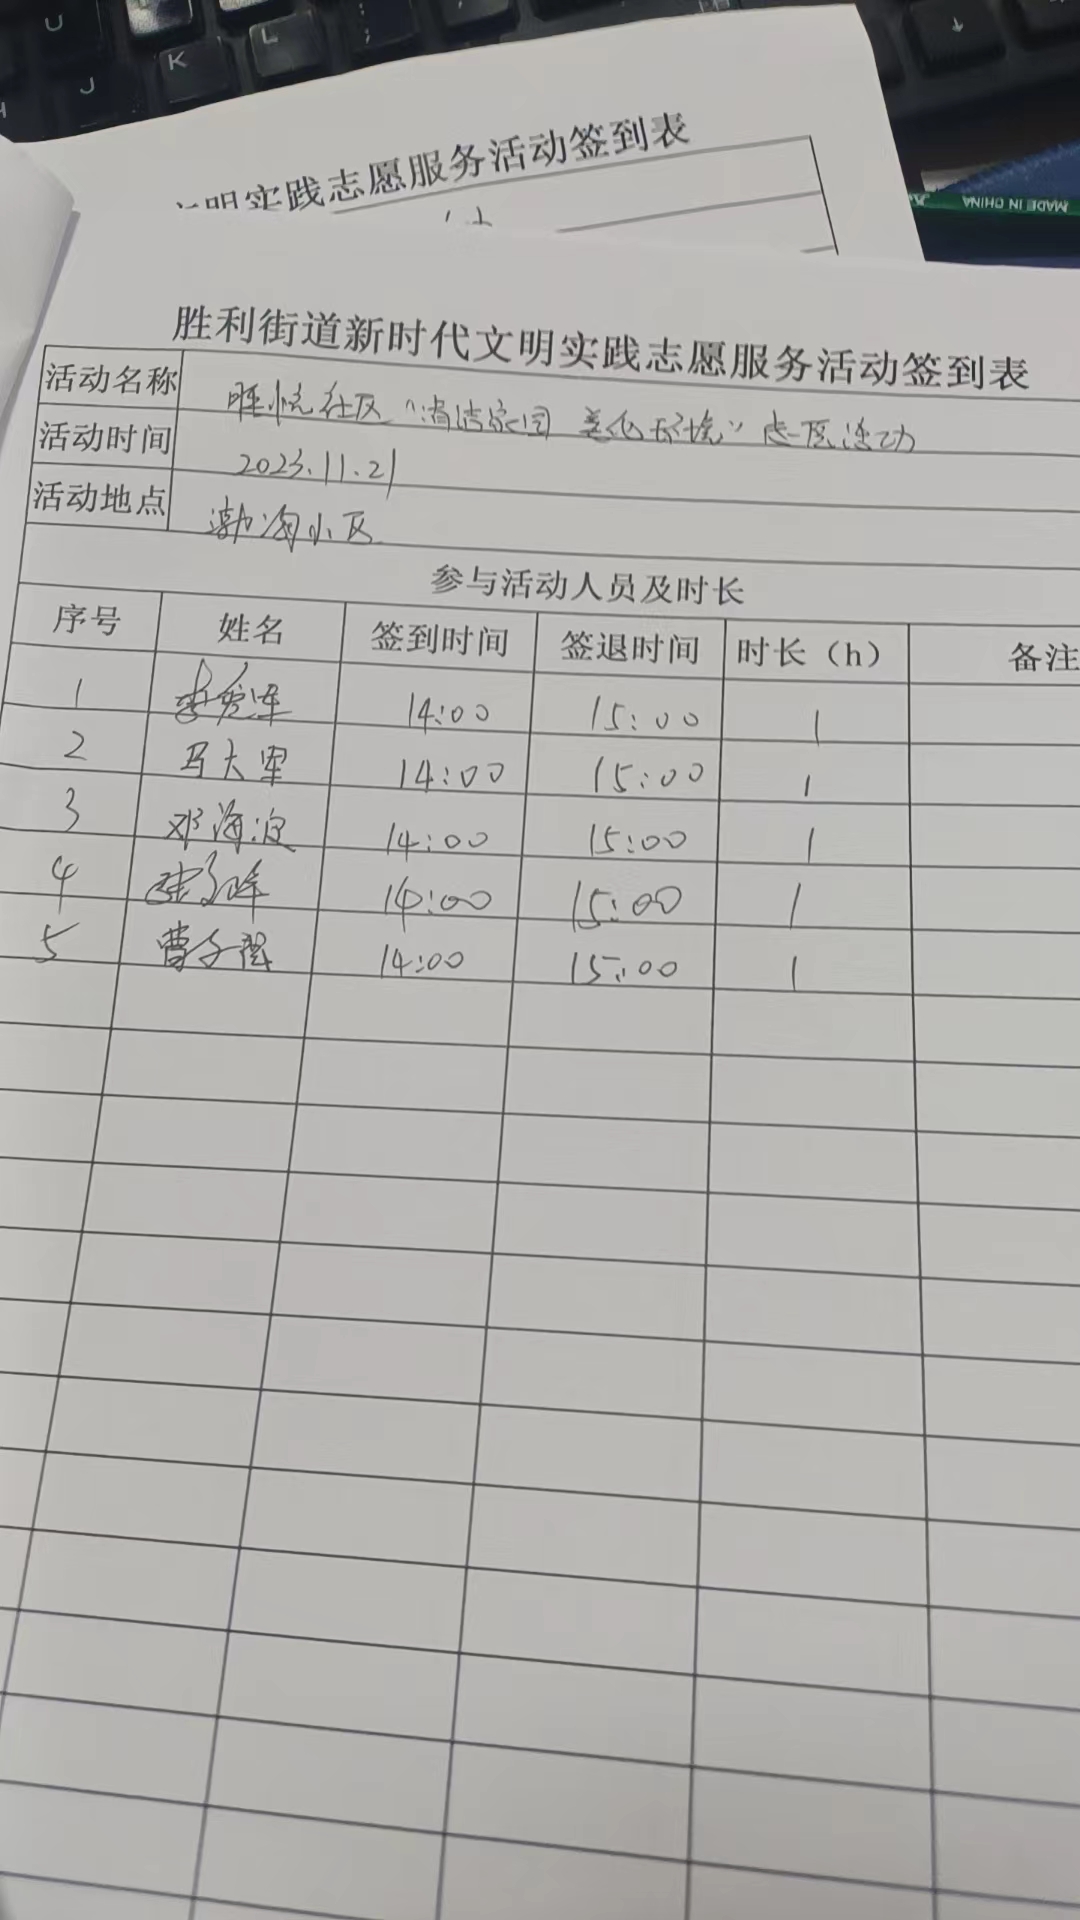 U
J
K
L
;
文明实践志愿服务活动签到表
MADE IN CHINA
胜利街道新时代文明实践志愿服务活动签到表
活动名称 悦社区“清洁家园 美化环境”志愿活动
活动时间 2023.11.21
活动地点 渤海小区
参与活动人员及时长
序号 姓名 签到时间 签退时间 时长（h） 备注
1 李爱军 14:00 15:00 1
2 马大军 14:00 15:00 1
3 邓海波 14:00 15:00 1
4 14:00 15:00 1
5 曹子 14:00 15:00 1